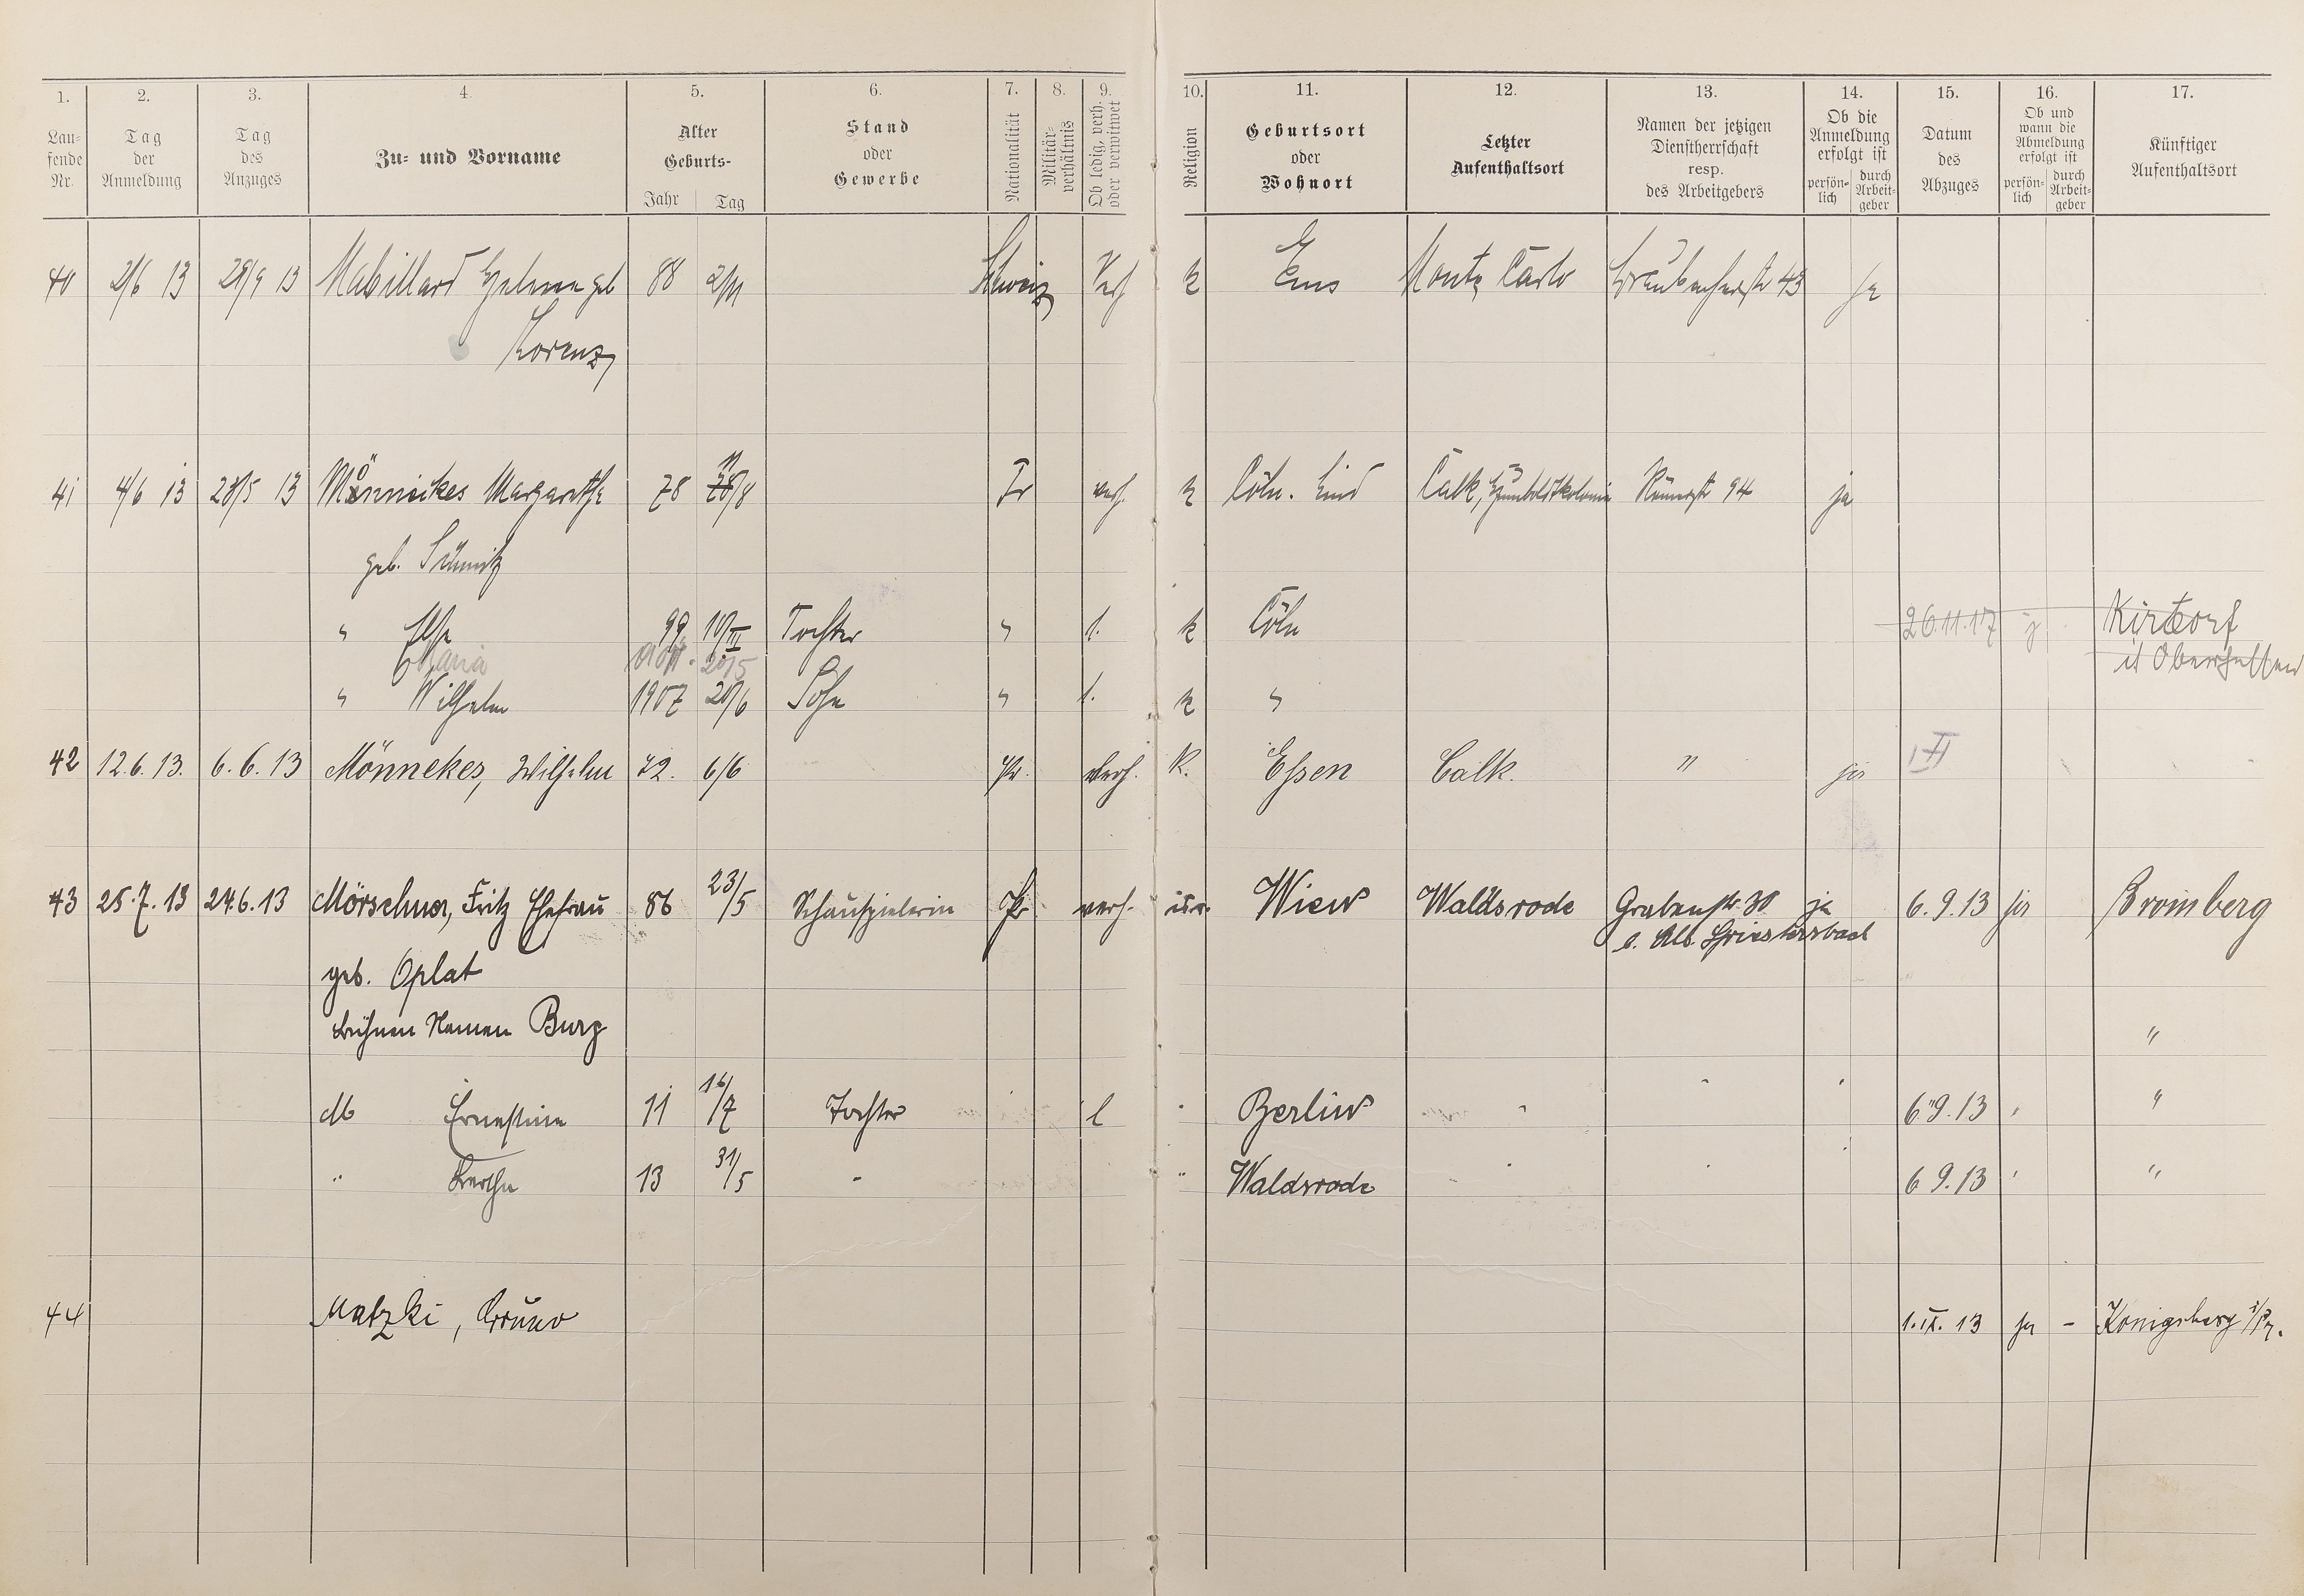 1. 2. 3. 4. 5. 6. 7. 8. 9. 10. 11. 12. 13. 14. 15. 16. 17.
Lau-
fende
Nr.
Tag
der
Anmeldung
Tag
des
Anzuges
Zu- und Vorname
Alter
Geburts-
Jahr Tag
Stand
oder
Gewerbe
Nationalität
Militär-
verhältnis
Ob ledig, verh.
oder verwitwet
Religion
Geburtsort
oder
Wohnort
Letzter
Aufenthaltsort
Namen der jetzigen
Dienstherrschaft
resp.
des Arbeitgebers
Ob die
Anmeldung
erfolgt ist
persön-
lich
durch
Arbeit-
geber
Datum
des
Abzuges
Ob und
wann die
Abmeldung
erfolgt ist
persön-
lich
durch
Arbeit-
geber
Künftiger
Aufenthaltsort
40 2/6 13 29/4 13 Mabillard Helene geb 88 2/11 Schweiz Verh k Ems Monte Carlo 43 Ja
Lorenz
41 4/6 13 28/5 13 Mönnekes Margarethe 78 11/8 Pr verh. k Cöln. Lind Calk, Humboldtkolonie Römerstr 94 ja
geb. Schmitz
" Else 99 10/III Tochter " l. k Cöln 26.11.17 j Kirtorf
Maria 20/5 it Oberhessen
" Wilhelm 1907 20/6 Sohn " l. k "
42 12.6.13. 6.6.13 Mönnekes, Wilhelm 72. 6/6 Pr. verh. K. Essen Calk. " ja
43 25.7.13 24.6.13 Mörschner, Fritz Ehefrau 86 23/5 Schauspielerin Pr verh. isr. Wien Waldsrode Grabenstr. 30 ja 6.9.13 ja Bromberg
b. Alb.
geb. Oplat
Bühnen Namen Burg "
M Ernestine 11 16/7 Tochter l Berlin 6.9.13 "
" Bertha 13 31/5 " " Waldsrode 6 9.13 "
44 Matzki, Bruno 1.IX.13 ja – Königsberg i/Pr.